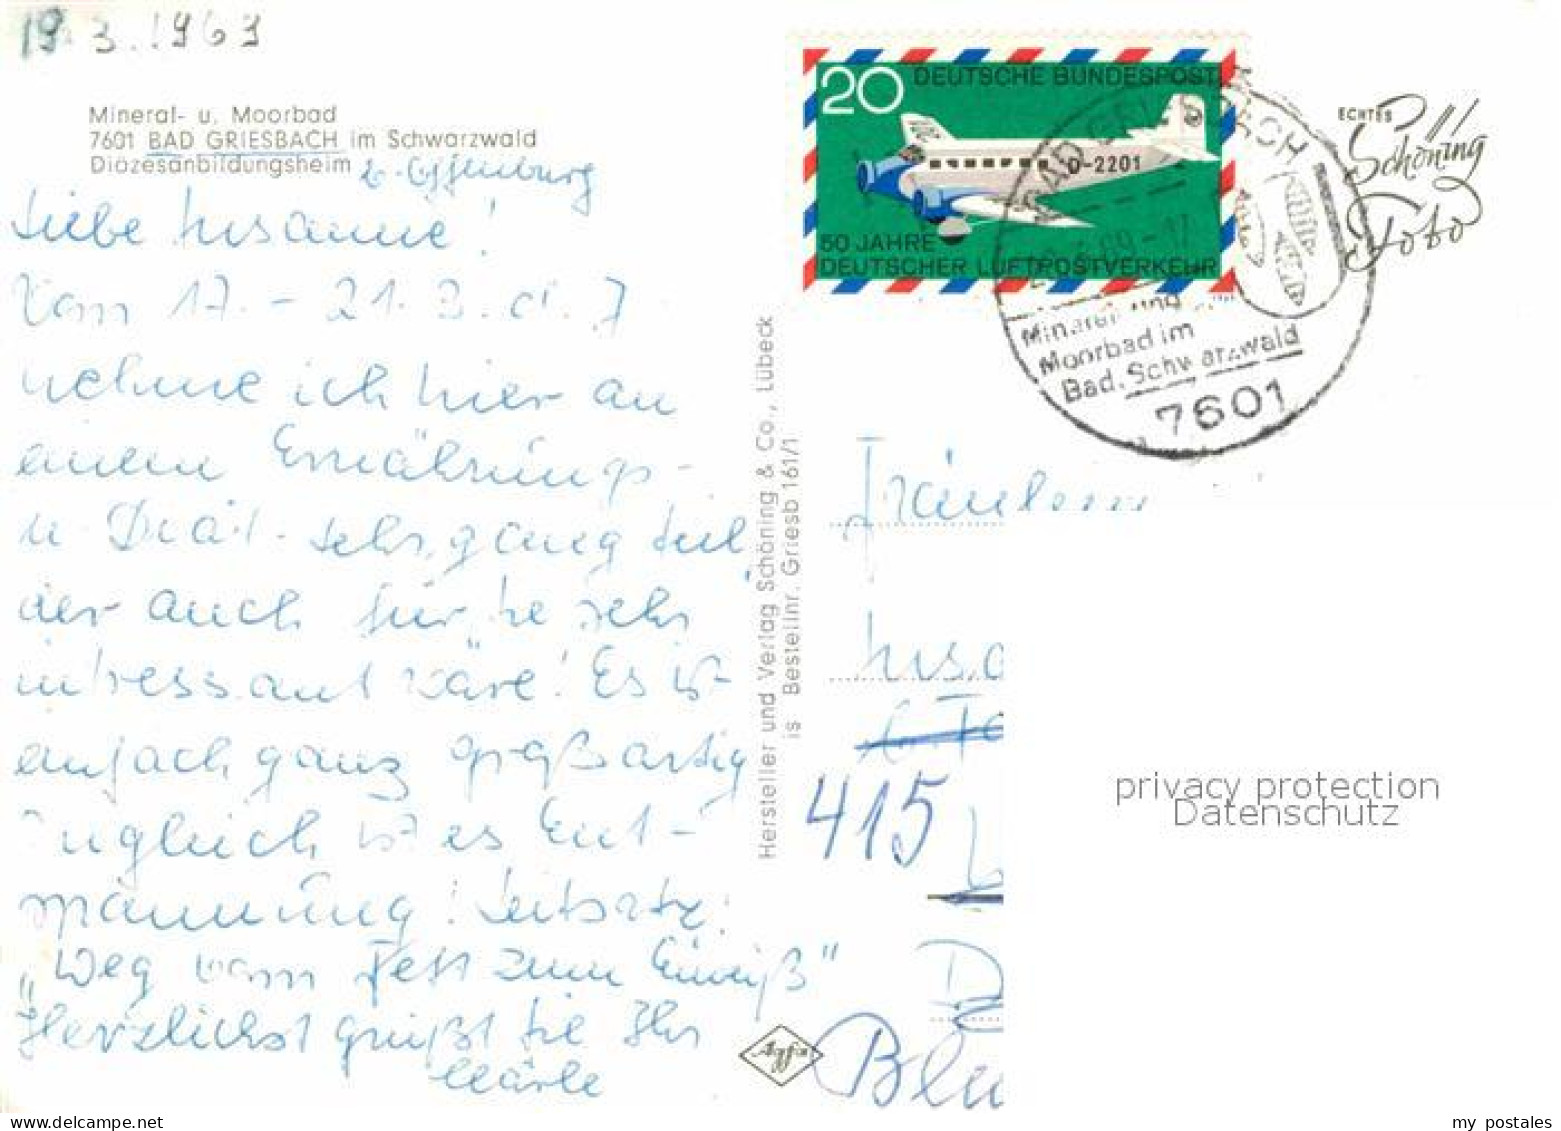 19.3.1969
Mineral- u. Moorbad
7601 BAD GRIESBACH im Schwarzwald
Diözesanbildungsheim b. Offenburg
Liebe Susanne!
Vom 17. - 21. 3. d. J.
nehme ich hier an
einem Ernährungs-
u. Diät-Lehrgang teil,
der auch für Sie sehr
intressant wäre! Es ist
einfach ganz großartig
Zugleich ist es Ent-
spannung! Leitsatz:
„Weg vom Fett zum Eiweiß"
Herzlichst grüßt Sie Ihr
Hersteller und Verlag Schöning & Co., Lübeck
is Bestellnr. Griesb 161/1
Agfa
20 DEUTSCHE BUNDESPOST
D-2201
50 JAHRE
DEUTSCHER LUFTPOSTVERKEHR
BAD GRIESBACH
Mineral- und
Moorbad im
Bad. Schwarzwald
7601
ECHTES
Schöning
Foto
Fräulein
Susa
415
D
Blu
privacy protection
Datenschutz
my postales